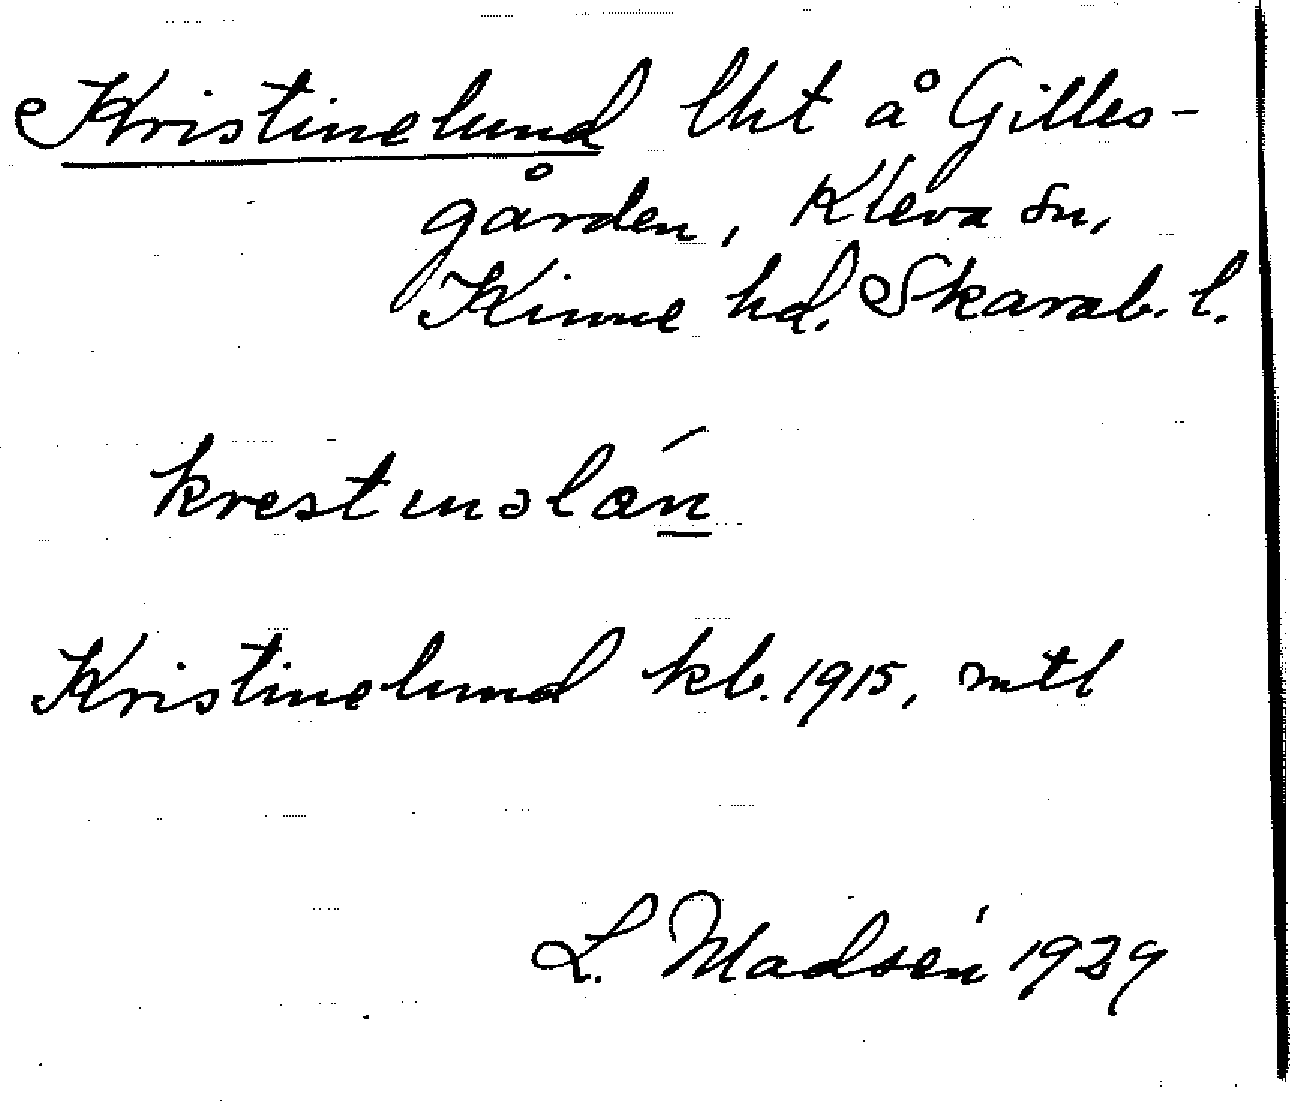 Kristinelund lht å Gilles-
gården, Kleva sn,
Kinne hd. Skarab. l.
Kristinelund kb. 1915, mtl
L. Madsén